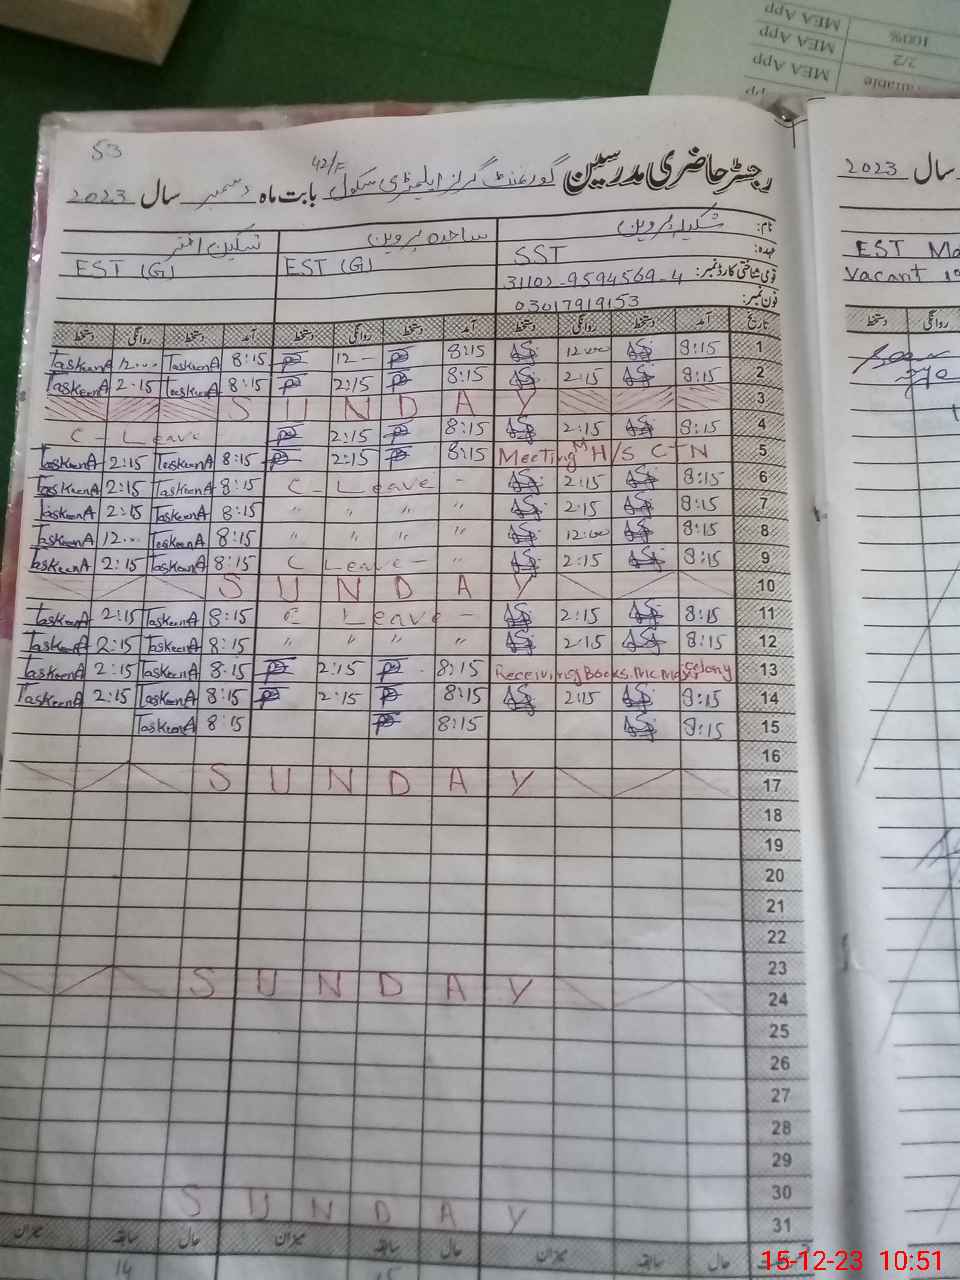 MEA App
100%
MEA App
2/2
MEA App
53
رجسٹر حاضری مدرسین گورنمنٹ گرلز ایلیمنٹری سکول 42/F بابت ماہ دسمبر سال 2023
نام: شکیلہ پروین ساجدہ پروین تسکین اختر
عہدہ: SST EST (G) EST (G)
قومی شناختی کارڈ نمبر:
فون نمبر: 03017919153
تاریخ آمد دستخط روانگی دستخط آمد دستخط روانگی دستخط آمد دستخط روانگی دستخط
TaskeenA 12... TaskeenA 8:15 12 - 8:15 12:00 8:15 1
TaskeenA 2:15 TaskeenA 8:15 2:15 8:15 2:15 8:15 2
S U N D A Y 3
C - Leave 2:15 8:15 2:15 8:15 4
TaskeenA 2:15 TaskeenA 8:15 2:15 8:15 Meeting M H/S CTN 5
TaskeenA 2:15 TaskeenA 8:15 C - Leave - 2:15 8:15 6
TaskeenA 2:15 TaskeenA 8:15 " " " " 2:15 8:15 7
TaskeenA 12... TaskeenA 8:15 " " " " 12:00 8:15 8
TaskeenA 2:15 TaskeenA 8:15 C Leave - " 2:15 8:15 9
S U N D A Y 10
TaskeenA 2:15 TaskeenA 8:15 C Leave - 2:15 8:15 11
TaskeenA 2:15 TaskeenA 8:15 " " " " 2:15 8:15 12
TaskeenA 2:15 TaskeenA 8:15 2:15 8:15 Receiving Books. Colony 13
TaskeenA 2:15 TaskeenA 8:15 2:15 8:15 2:15 8:15 14
TaskeenA 8:15 8:15 8:15 15
16
S U N D A Y 17
18
19
20
21
22
23
S U N D A Y 24
25
26
27
28
29
30
S U N D A Y 31
حال سابقہ میزان حال سابقہ میزان حال سابقہ میزان
14
2023 سال
EST
Vacant
دستخط روانگی
15-12-23 10:51